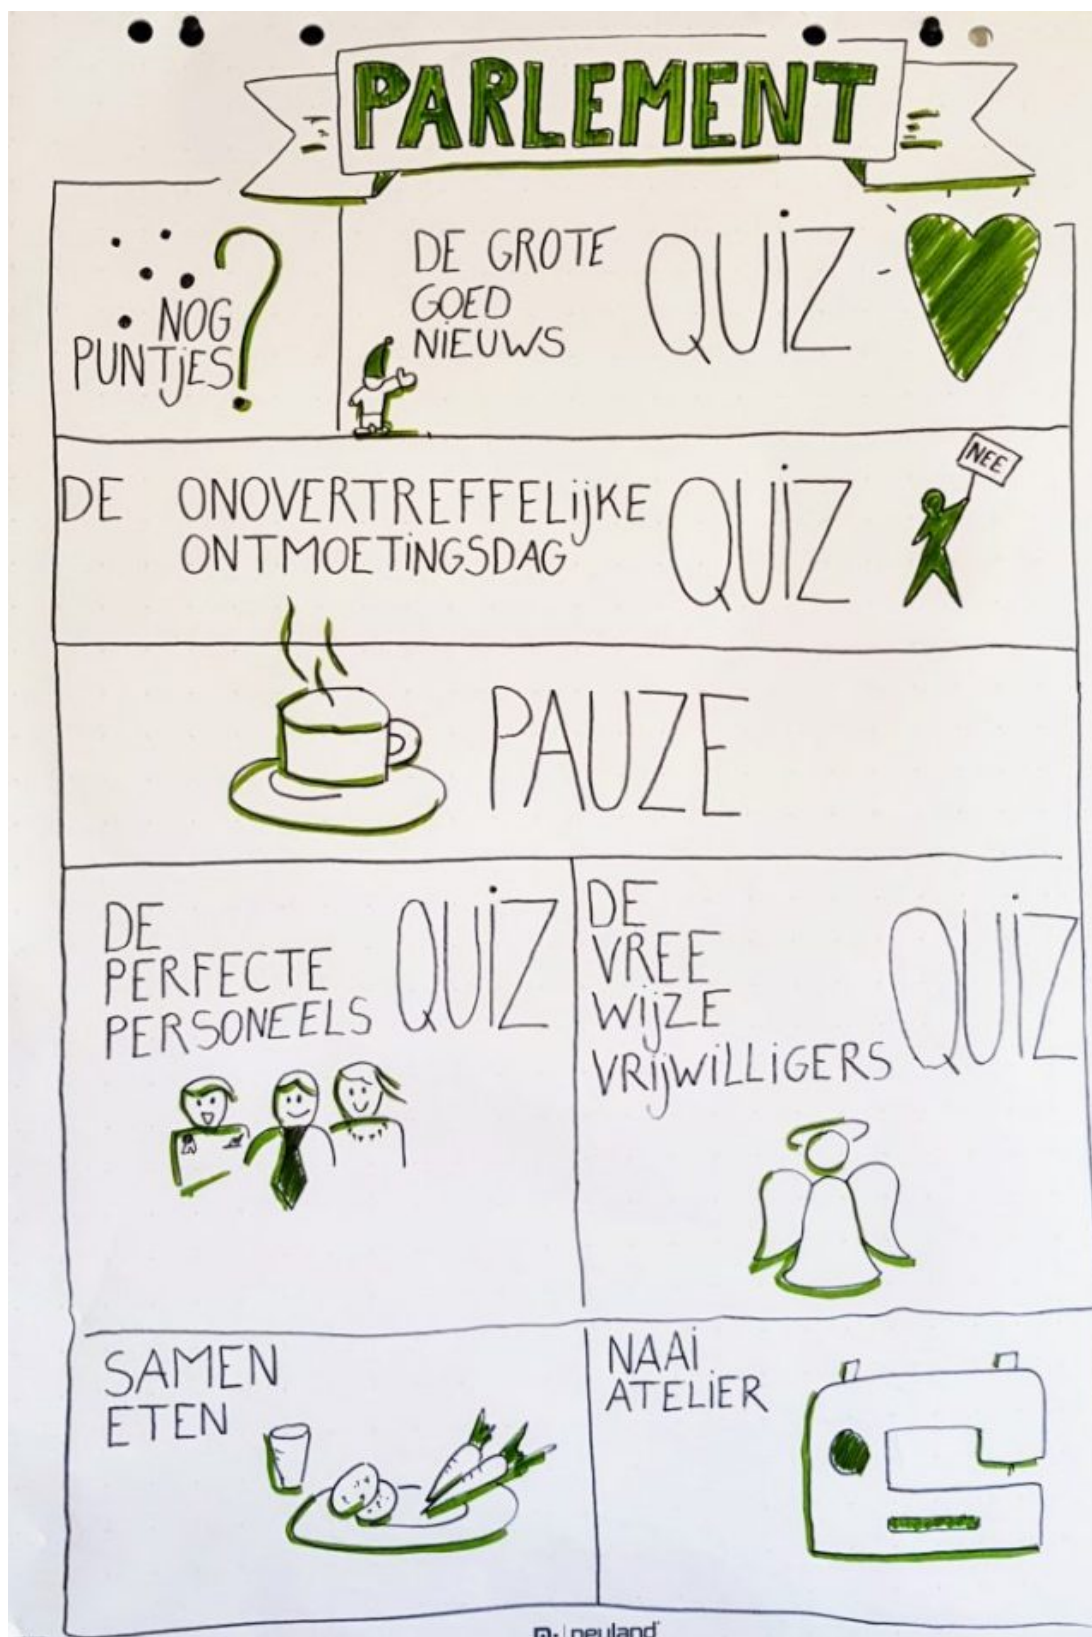 PARLEMENT
NOG
PUNTjES?
DE GROTE
GOED
NIEUWS
QUiZ
DE ONOVERTREFFELijKE
ONTMOETiNGSDAG
QUiZ
NEE
PAUZE
DE
PERFECTE
PERSONEELS
QUiZ
DE
VREE
WijZE
VRijWiLLiGERS
QUiZ
SAMEN
ETEN
NAAi
ATELiER
neuland